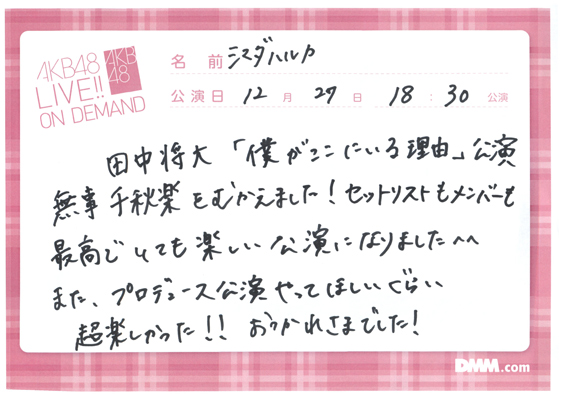 AKB48
LIVE!!
ON DEMAND
AKB
48
名 前 シマダハルカ
公演日 12 月 27 日 18 : 30 公演
田中将大「僕がここにいる理由」公演
無事 千秋楽をむかえました！セットリストもメンバーも
最高でとても楽しい公演になりました^^
また、プロデュース公演やってほしいぐらい
超楽しかった！！ おつかれさまでした！
DMM.com